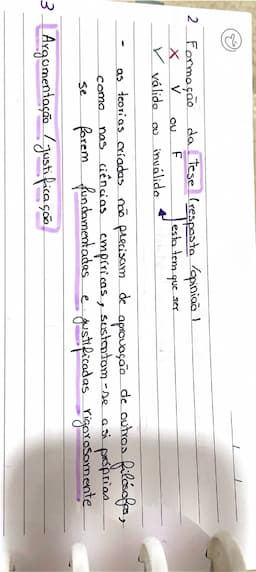 2 Formação da Tese (resposta /opinião)
✗ V ou F
✓ válido ou inválido
esta tem que ser
- as teorias criadas não precisam de aprovação de outros filósofos,
como nas ciências empíricas, sustentam-se a si próprias
se forem fundamentadas e justificadas rigorosamente
3 Argumentação / justificação